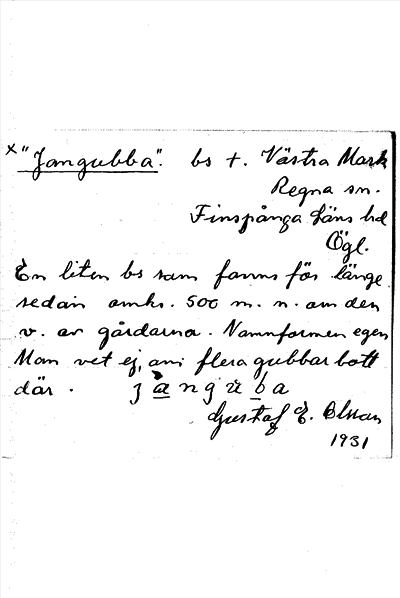 x "Jangubba". bs t. Västra Mark
Regna sn.
Finspånga läns hd
Ögl.
En liten bs som fanns för länge
sedan omkr. 500 m. n. om den
v. av gårdarna. Namnformen egen
Man vet ej, om flera gubbar bott
där. janguba
Gustaf E.
1931